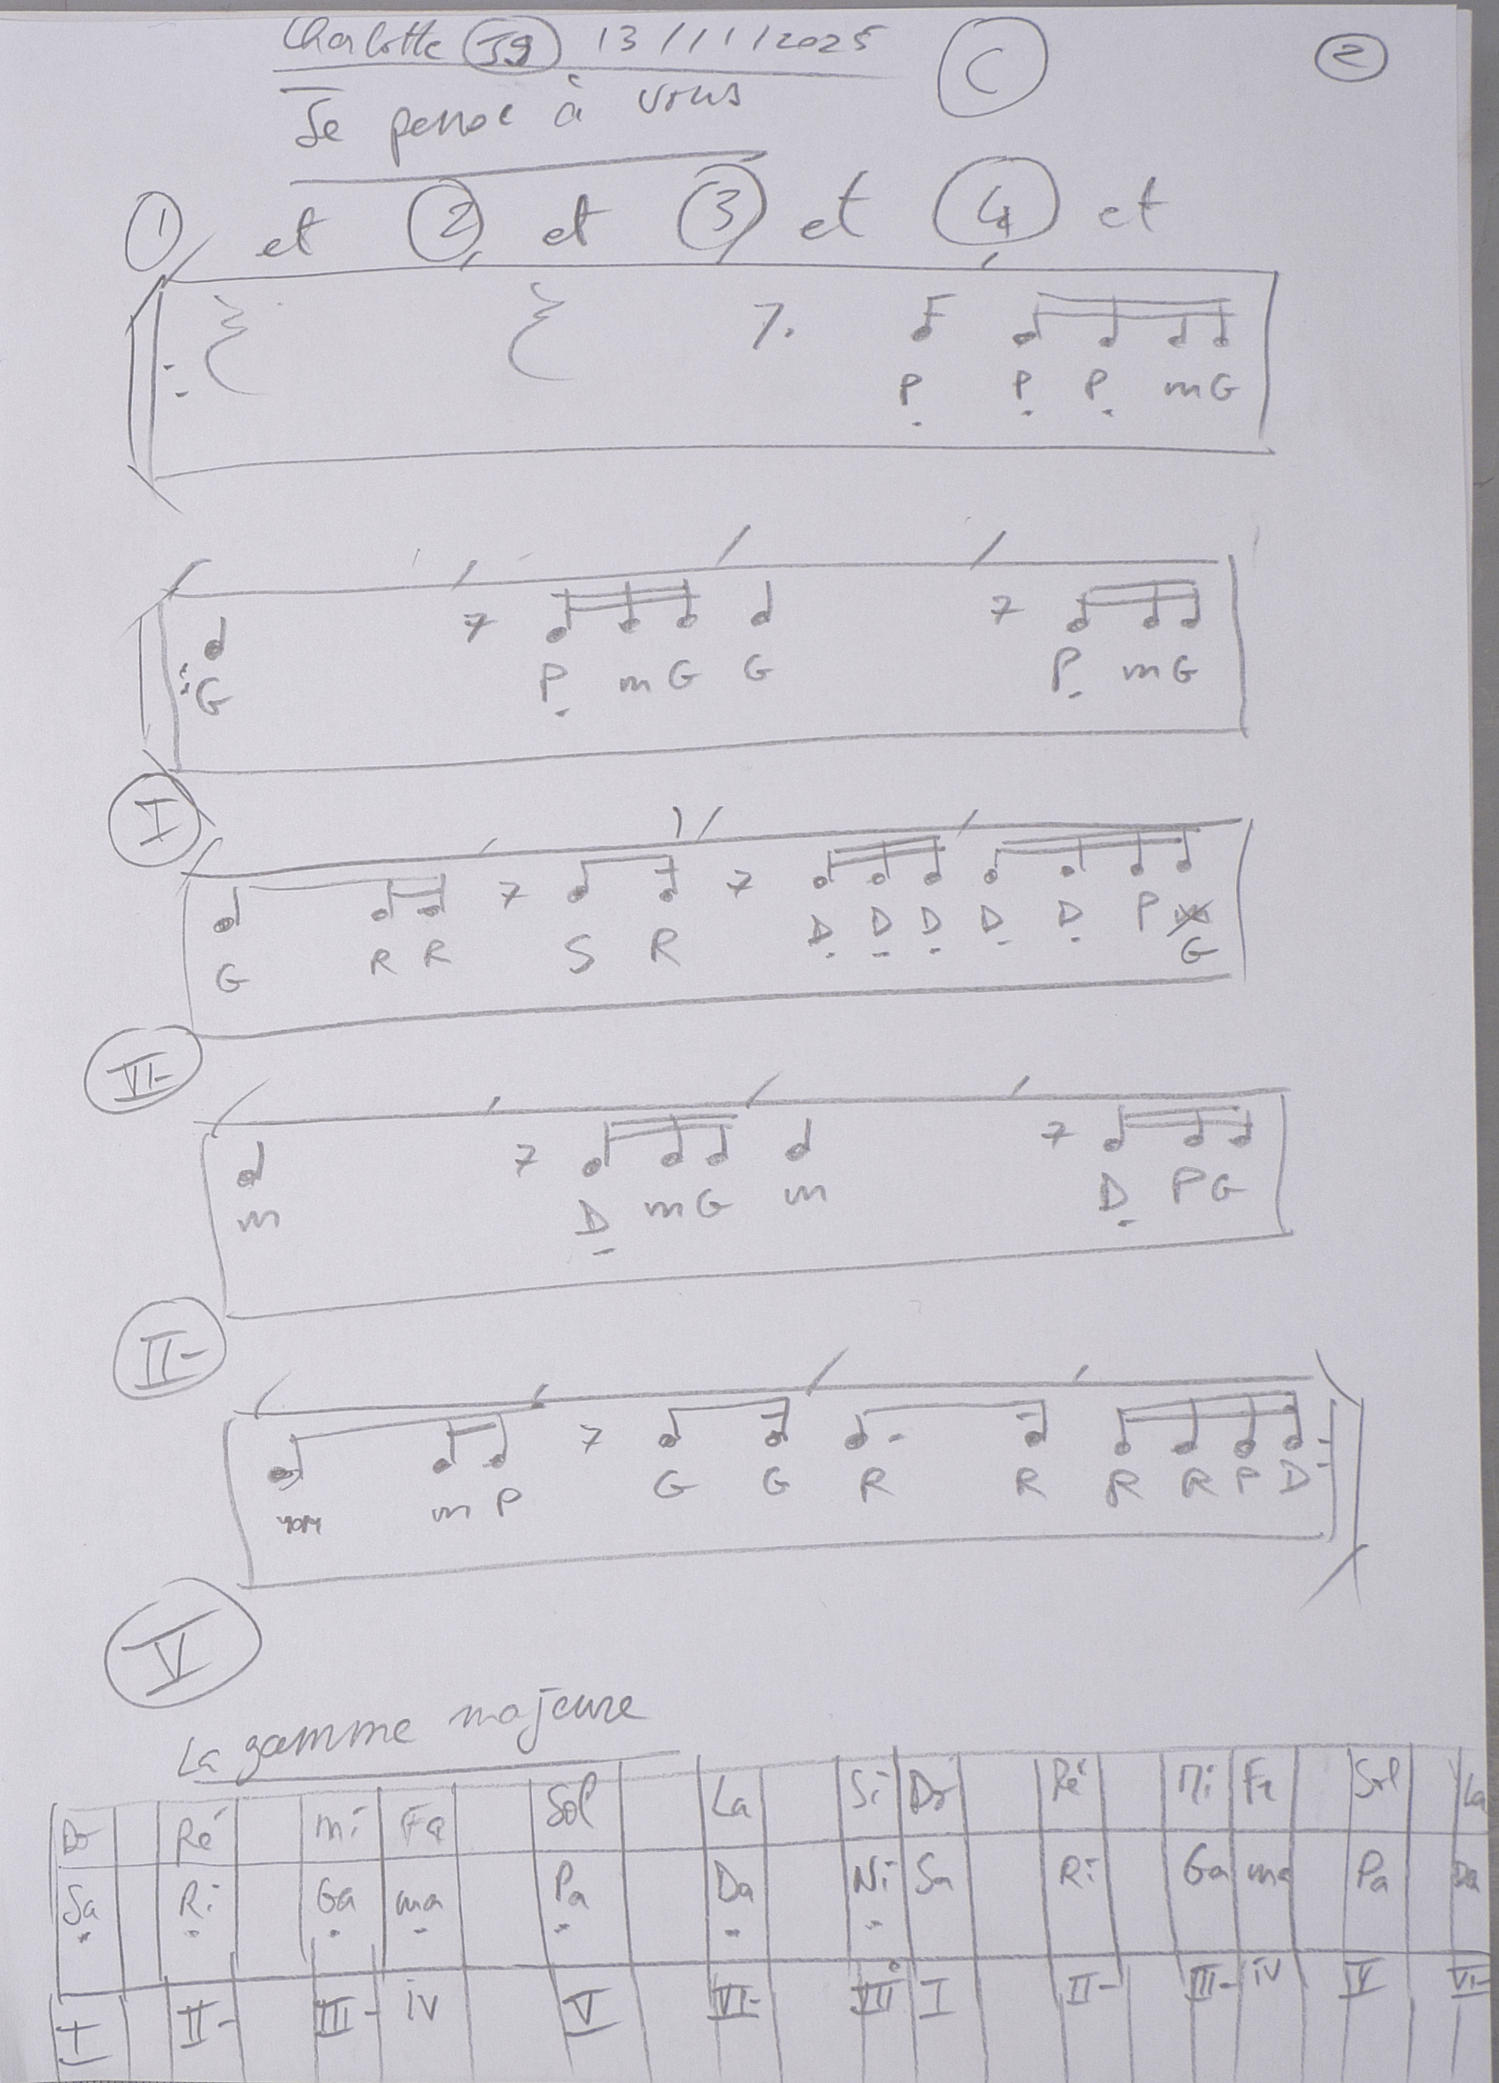 Charlotte 39 13/11/2025 C 2
Je pense à vous
1 et 2 et 3 et 4 et
P P P m G
G P m G G P m G
I
G R R S R D D D D D P G
VI-
m D m G m D P G
II-
m m P G G R R R R P D
V
La gamme majeure
Do Ré mi Fa Sol La Si Do Ré Mi Fa Sol La
Sa Ri Ga ma Pa Da Ni Sa Ri Ga ma Pa Da
I II- III- iv V VI- VII° I II- III- iv V VI-